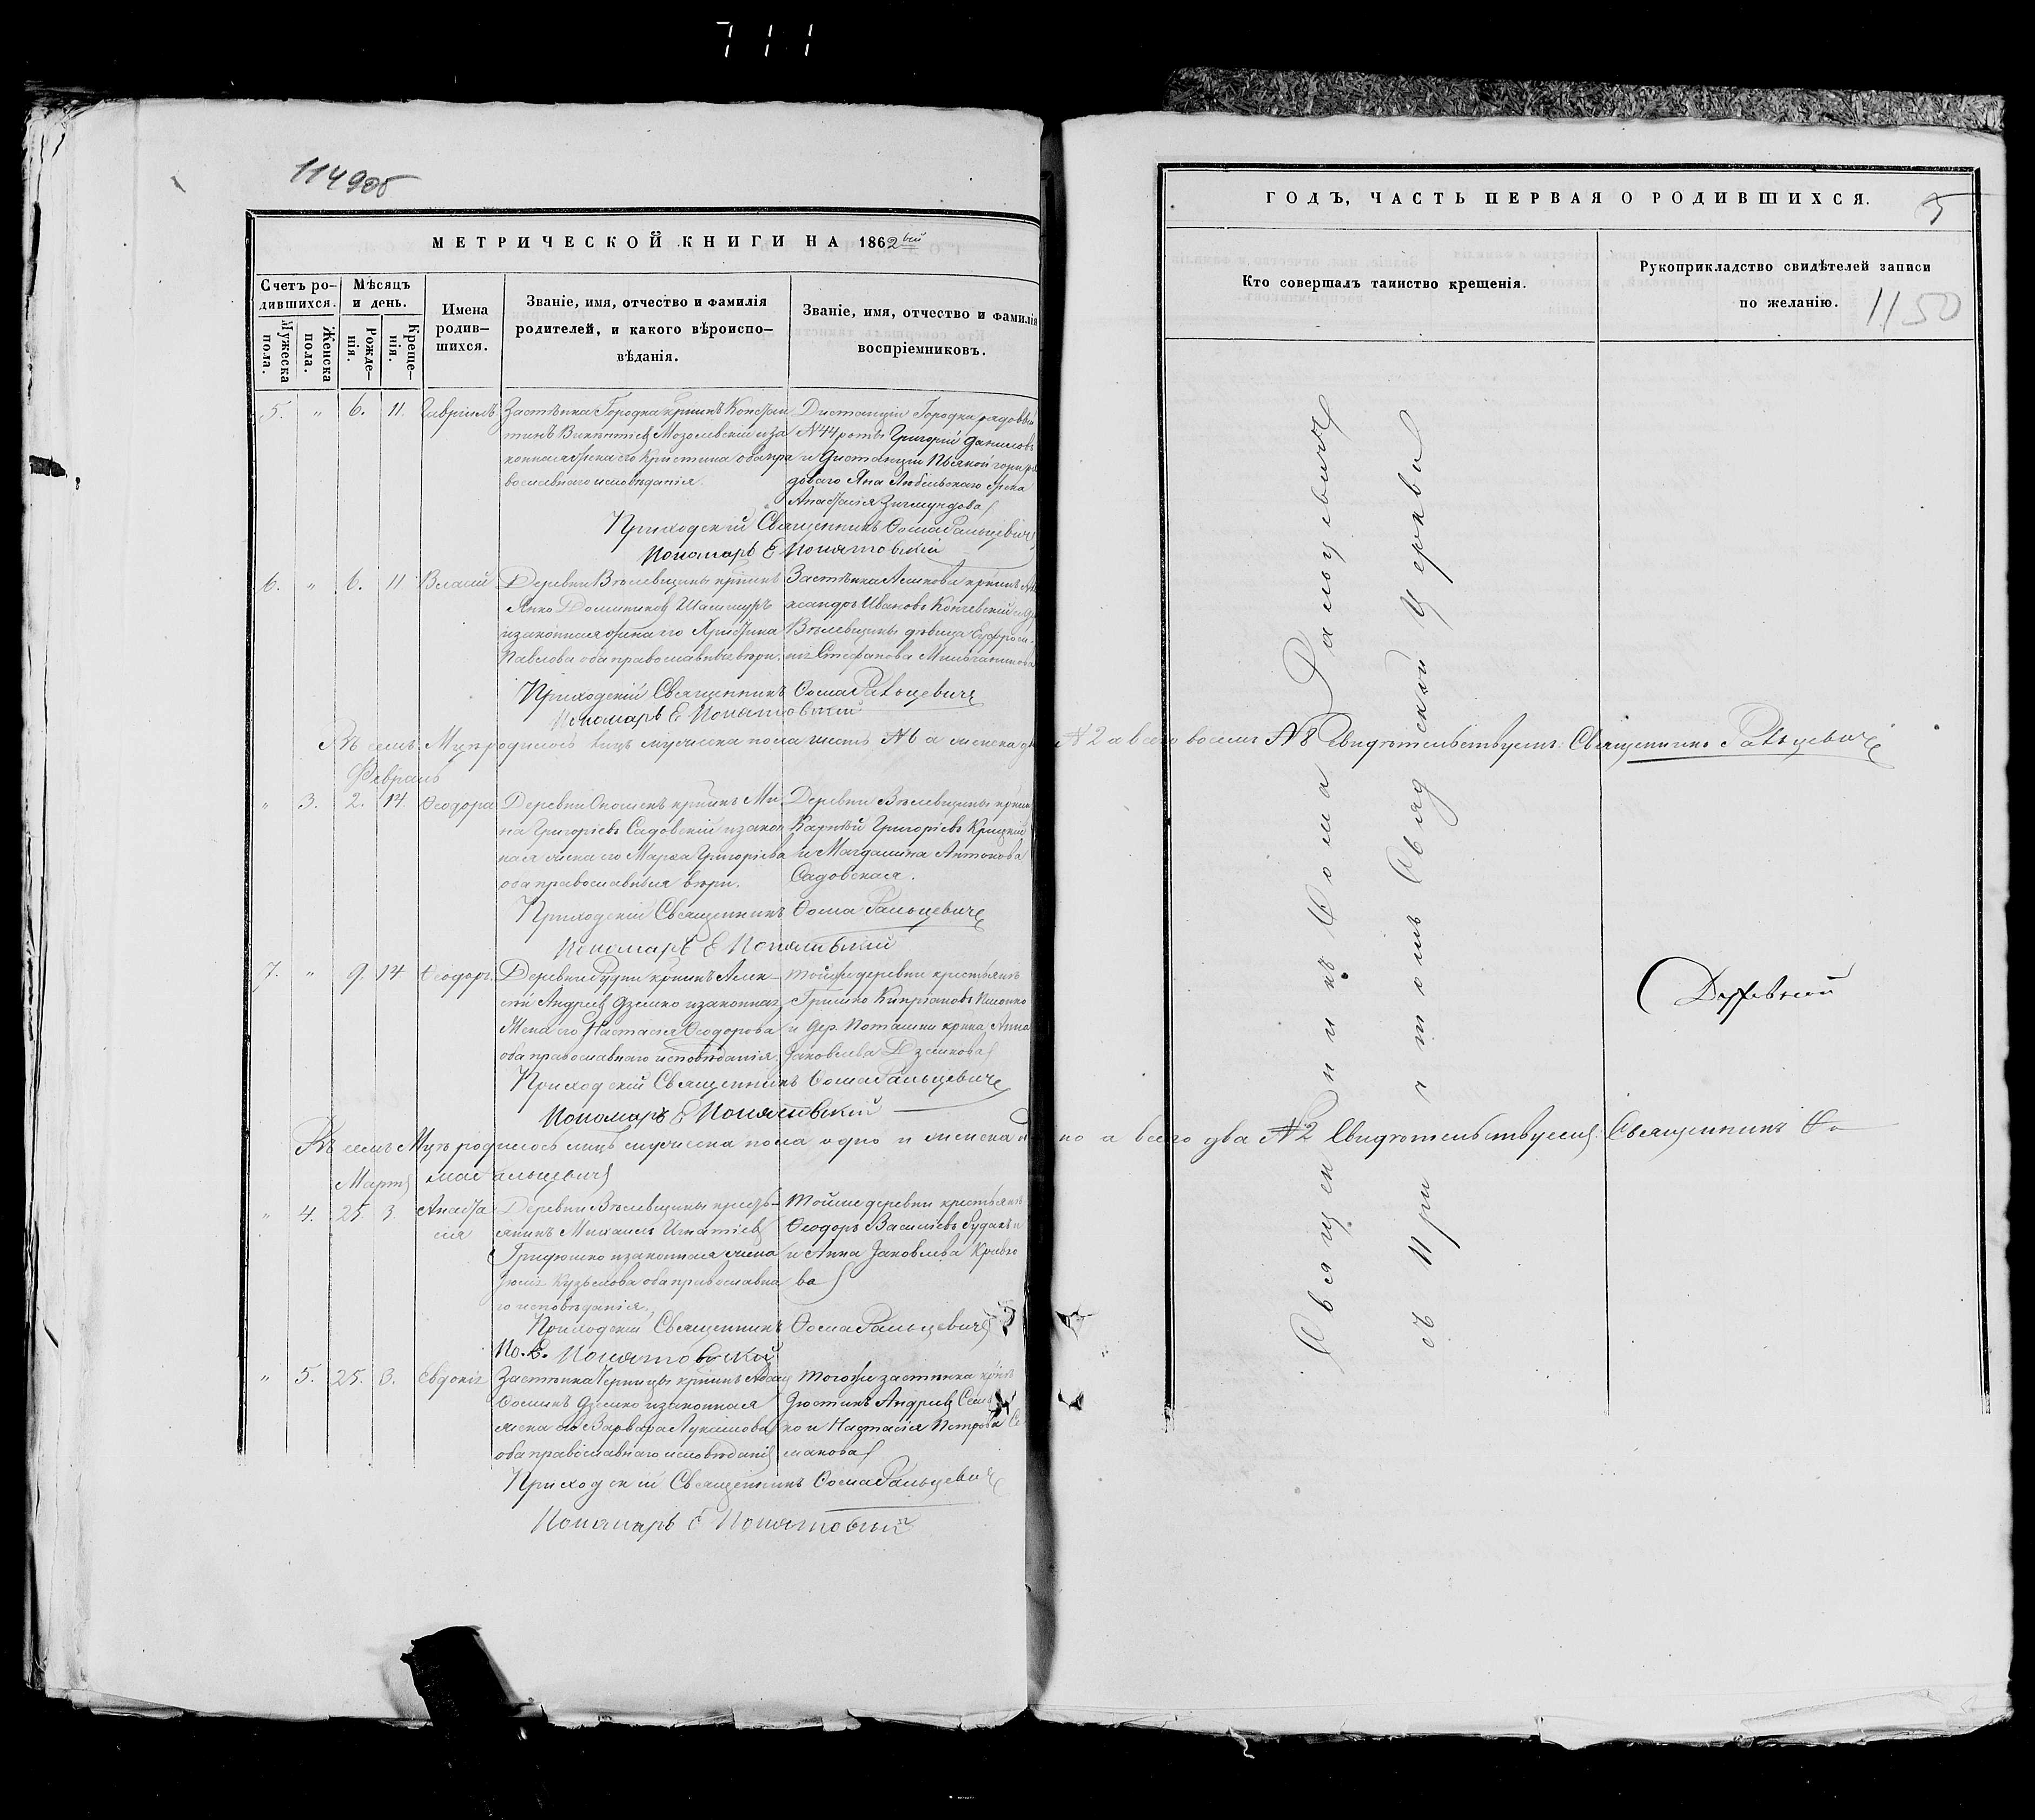 711
1149об
МЕТРИЧЕСКОЙ КНИГИ НА 1862бій
Счетъ родившихся.
Мѣсяцъ и день.
Мужеска пола.
Женска пола.
Рожденія.
Крещенія.
Имена родившихся.
Званіе, имя, отчество и фамилія
родителей, и какого вѣроиспо-
вѣданія.
Званіе, имя, отчество и фамилія
воспріемниковъ.
5. " 6. 11. Гавріилъ
Застѣнка Городка крнинъ Констан
тинъ Викентіевъ Мозолевскій и за
конная жена его Кристина оба пра
вославнаго исповѣданія.
Дистанціи Городка рядовый
N44 роты Григорій Даниловъ
и Дистанціи
доваго Яна жена
Анастасія Зигмундова
Приходскій Священникъ Ѳома Ральцевичъ
Пономарь Е Понятовскій
6. " 6. 11 Власій
Деревни Вѣлевщины крнинъ
Янко Доминиковъ
и законная жена его Христина
Павлова оба православной вѣры.
Застѣнка крнинъ Але
ксандръ Ивановъ
Вѣлевщины дѣвица Евфроси-
нія Стефанова
Приходскій Священникъ Ѳома Ральцевичъ
Пономарь Е Понятовскій
Въ семъ Мцѣ родилось лицъ мужеска пола шесть №6 а женска два №2 а всего восемь №8 Свидѣтельствуетъ: Священникъ Ральцевичъ
Февраль
" 3. 2. 14. Ѳеодора
Деревни крнинъ Ми
на Григоріевъ Садовскій и закон
ная жена его Марѳа Григоріева
оба православныя вѣры.
Деревни Вѣлевщины крнинъ
Карнѣй Григоріевъ Крицкій
и Магдалина Антонова
Садовская.
Приходскій Священникъ Ѳома Ральцевичъ
Пономарь Е Понятовскій
7. " 9. 14 Ѳеодоръ
Деревни Рудни крнинъ Алек-
сѣй Андреевъ Дземко и законная
Жена его Настасія Ѳеодорова
оба православнаго исповѣданія.
Тойже деревни крестьянинъ
Гришко Кипріановъ
и дер. Поташни крнка Анна
Яковлева Дземкова
Приходскій Священникъ Ѳома Ральцевичъ
Пономарь Е Понятовскій
Въ семъ Мцѣ родилось лицъ мужеска пола одно и женска одно а всего два №2 Свидѣтельствуетъ: Священникъ Ѳо-
ма Ральцевичъ
Мартъ
" 4. 25 3. Анаста
сія
Деревни Вѣлевщины кресть-
янинъ Михаилъ Игнатіевъ
и законная жена
Кузьмова оба православна
го исповѣданія.
Тойже деревни крестьянинъ
Ѳеодоръ Васильевъ
и Анна Яковлева Кравцо
ва
Приходскій Священникъ Ѳома Ральцевичъ
По. Е. Понятовскій
" 5. 25. 3. Евдокія
Застѣнка Черницы крнинъ Адамъ
Ѳоминъ Дземко и законная
жена его Варвара Лукашова
оба православнаго исповѣданія
Тогоже застѣнка крнинъ
Іюстинъ Андреевъ Сема
ко и Настасія Петрова Се
макова
Приходскій Священникъ Ѳома Ральцевичъ
Пономарь Е Понятовскій
ГОДЪ, ЧАСТЬ ПЕРВАЯ О РОДИВШИХСЯ.
5
Кто совершалъ таинство крещенія.
Рукоприкладство свидѣтелей записи
по желанію.
1150
Священникъ Ѳома Ральцевичъ
съ Причтомъ Свядской Церкви